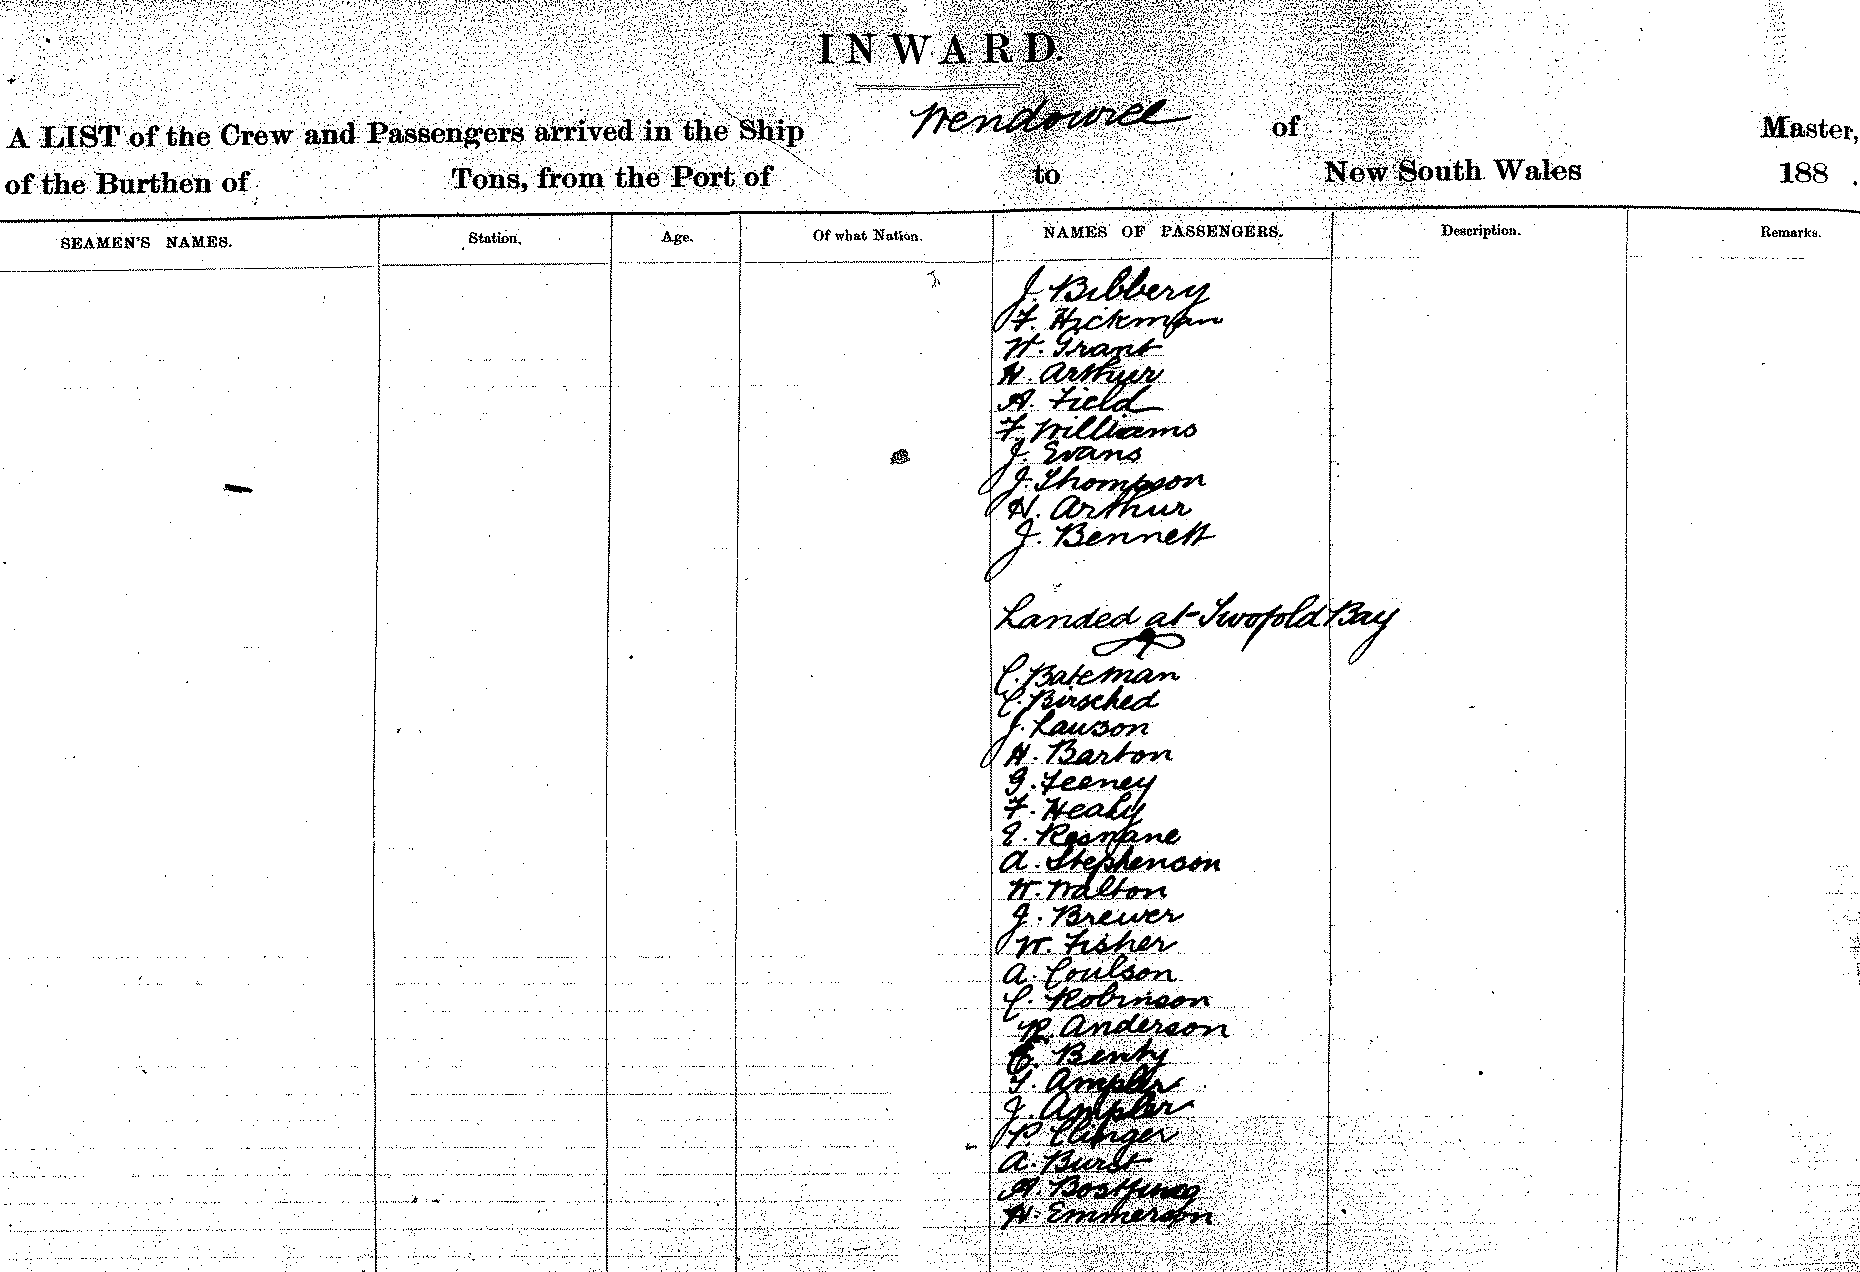 INWARD.
A LIST of the Crew and Passengers arrived in the Ship Wendouree of Master,
of the Burthen of Tons, from the Port of to New South Wales 188 .
SEAMEN'S NAMES. Station. Age. Of what Nation. NAMES OF PASSENGERS. Description. Remarks.
J. Bibbery
F. Hickman
W. Grant
H. Arthur
A. Field
F. Williams
J. Evans
J. Thompson
H. Arthur
J. Bennett
Landed at Twofold Bay
C. Bateman
C. Birsched
J. Lawson
H. Barton
G. Feeney
F. Healy
E. Rosmane
A. Stephenson
W. Walton
J. Brewer
W. Fisher
A. Coulson
C. Robinson
R. Anderson
Benty
Ampler
J. Ampler
P. Clinger
A. Burst
A.
H. Emmerson